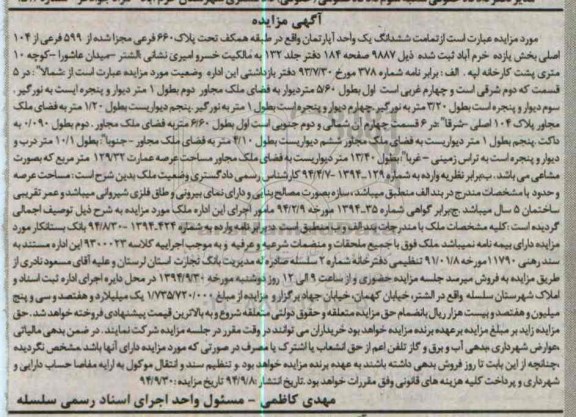 آگهی مزایده
مورد مزایده عبارت است ازتمامت ششدانگ یک واحد آپارتمان واقع در طبقه همکف تحت پلاک ۶۶۰ فرعی مجزا شده از ۵۹۹ فرعی از ۱۰۴
اصلی بخش یازده خرم آباد ثبت شده ذیل ۹۸۸۷ صفحه ۱۸۴ دفتر جلد ۱۳۲ به مالکیت خسرو امیری نشانی الشتر –میدان عاشورا –کوچه ۱۰
متری پشت کارخانه لپه . الف : برابر نامه شماره ۳۷۸ مورخ ۹۳/۷/۳۰ دفتر بازداشتی این اداره وضعیت مورد مزایده عبارت است از :شمالا": در ۵
قسمت که دوم شرقی است و چهارم غربی است اول بطول ۵/۶۰ متردیوار به فضای ملک مجاور دوم بطول ۱ متر دیوار و پنجره ایست به نورگیر.
سوم دیوار و پنجره است بطول ۳/۲۰ متر به نورگیر.چهارم دیوار و پنجره است بطول ۱ متر به نورگیر.پنجم دیواریست بطول ۱/۲۰ متر به فضای ملک
مجاور پلاک ۱۰۴ اصلی –شرقا" در ۶ قسمت چهارم آن شمالی و دوم جنوبی است اول بطول ۶/۶۰ متر به فضای ملک مجاور . دوم بطول ۰/۰۹۰ به
داکت .پنجم بطول ۱ متر دیواریست به فضای ملک مجاور ششم دیواریست بطول ۴/۱۰ متر به فضای ملک مجاور –جنوبا" بطول ۱۰/۱ متر درب و
دیوار و پنجره است به تراس زمینی –غربا" بطول ۱۳/۴۰ متر دیواریست به فضای ملک مجاور مساحت عرصه عمارت ۱۲۹/۳۲ متر مربع که بصورت
مشاعی می باشد. ب.برابر نظریه وارده به شماره ۱۲۹–۱۳۹۴ –۹۴/۴/۷ کارشناس رسمی دادگستری وضعیت ملک بدین شرح است: مساحت عرصه
و حدود با مشخصات مندرج در بند الف منطبق میباشد ،سازه بصورت مصالح بنایی و دارای نمای بیرونی و طاق فلزی شیروانی میباشد و عمر تقریبی
ساختمان ۵ سال میباشد .ج.برابر گواهی شماره ۳۵–۱۳۹۴ مورخه ۹۴/۲/۹ مامور اجرای این اداره ملک مورد مزایده به شرح ذیل توصیف اجمالی
گردیده است :کلیه مشخصات ملک با مندرجات بند الف و ب منطبق است .د.برابر نامه وارده به شماره ۴۲۳–۱۳۹۴ –۹۴/۸/۳۰ بانک بستانکار مورد
مزایده دارای بیمه نامه نمیباشد .ملک فوق با جمیع ملحقات و منضمات شرعیه و عرفیه و به موجب اجراییه کلاسه ۹۳۰۰۰۲۳ این اداره مستند به
سند رهنی ۱۱۷۹۰ مورخه ۹۱/۰۱/۸ تنظیمی دفترخانه شماره ۲ سلسله صادره له مدیریت بانک تجارت استان لرستان و علیه آقای مسعود نادری از
طریق مزایده به فروش میرسد جلسه مزایده حضوری و از ساعت ۹ الی ۱۲ روز دوشنبه مورخه ۱۳۹۴/۹/۳۰ در محل دایره اجرای اداره ثبت اسناد و
املاک شهرستان سلسله واقع در الشتر، خیابان کهمان، خیابان جهاد برگزار و مزایده از مبلغ ۱/۷۳۵/۷۲۰/۰۰۰ یک میلیارد و هفتصد و سی و پنج
میلیون و هفتصد و بیست هزار ریال بانضمام حق مزایده متعلقه و حقوق دولتی متعلقه شروع و به بالاترین قیمت پیشنهادی فروخته خواهد شد. حق
مزایده زاید بر مبلغ مزایده بر عهده برنده مزایده خواهد بود خریداران می توانند در وقت مقرر در جلسه مزایده شرکت نمایند. در ضمن بدهی مالیاتی
،عوارض شهرداری ،بدهی آب و برق و گاز تلفن اعم از حق انشعاب یا اشتراک یا مصرف در صورتی که مورد مزایده دارای آنها باشد .مشخص نگردیده
،چنانچه از این بابت تا روز فروش بدهی داشته باشند به عهده برنده مزایده خواهد بود .و تنظیم سند و انتقال موکول به ارایه مفاصا حساب دارایی و
شهرداری و پرداخت کلیه هزینه های قانونی وفق مقررات خواهد بود .تاریخ انتشار :۹۴/۹/۸ تاریخ مزایده :۹۴/۹/۳۰
مهدی کاظمی – مسئول واحد اجرای اسناد رسمی سلسله